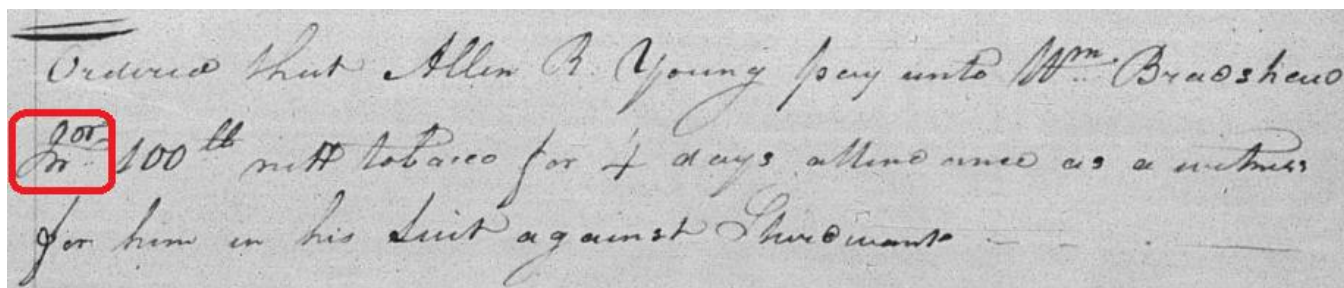 Ordered that Allen R. Young pay unto Wm Bradshead
100 lb nett tobacco for 4 days attendance as a witness
for him in his suit against